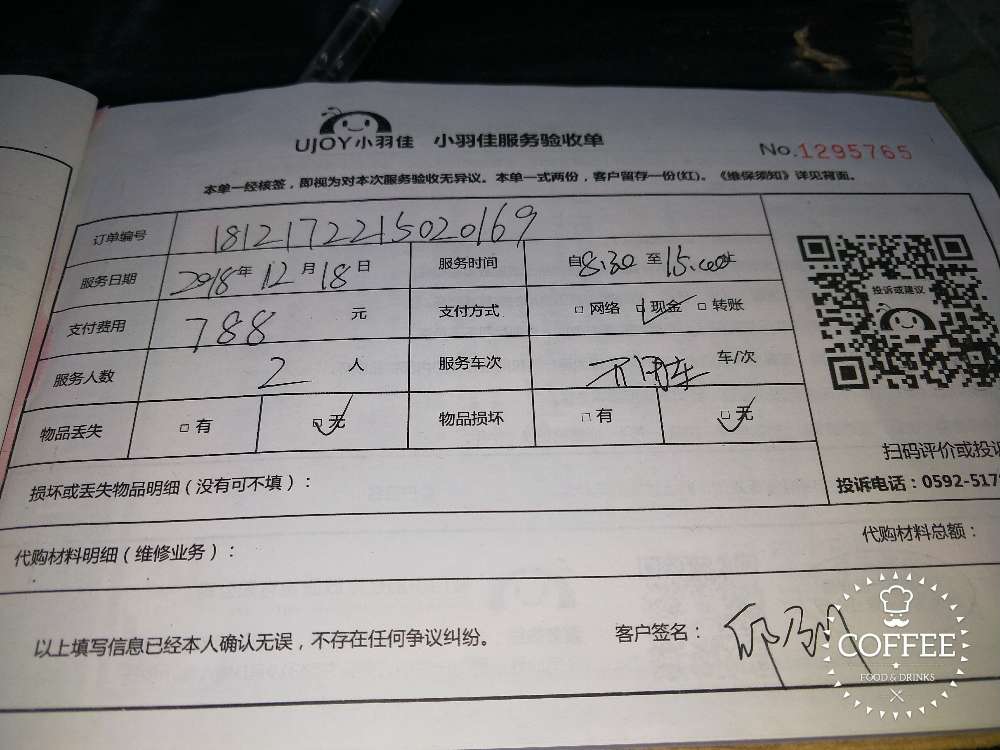 UJOY小羽佳 小羽佳服务验收单
No.1295765
本单一经核签，即视为对本次服务验收无异议。本单一式两份，客户留存一份(红)。《维保须知》详见背面。
订单编号 1812172215020169
服务日期 2018年12月18日 服务时间 自8:30至15:00止
支付费用 788 元 支付方式 □网络 □现金 □转账
服务人数 2 人 服务车次 不用车 车/次
物品丢失 □有 □无 物品损坏 □有 □无
投诉或建议
扫码评价或投诉
投诉电话：0592-517
损坏或丢失物品明细（没有可不填）：
代购材料明细（维修业务）：
代购材料总额：
以上填写信息已经本人确认无误，不存在任何争议纠纷。
客户签名：
COFFEE
FOOD & DRINKS